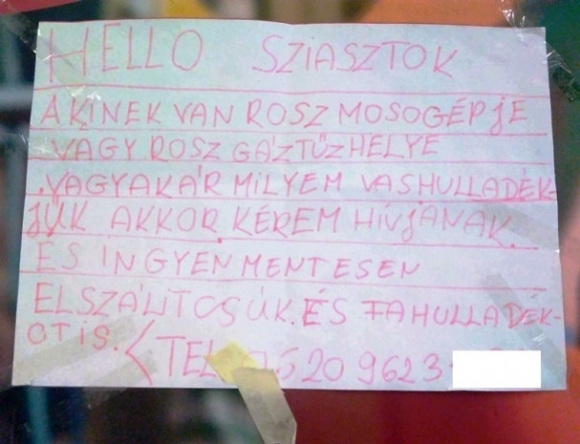 HELLO SZIASZTOK
AKINEK VAN ROSZ MOSOGÉPJE
VAGY ROSZ GÁZTŰZHELYE
VAGYAKÁR MILYEM VASHULLADÉK-
JUK AKKOR KÉREM HÍVJANAK.
ÉS INGYENMENTESEN
ELSZÁLITOSUK. ÉS FAHULLADÉK-
OT IS. TEL 20 9623